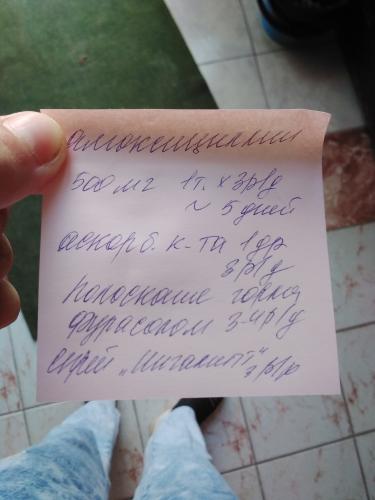 амоксициллин
500 мг 1т. х 3р/д
~ 5 дней
аскорб. к-та 1 др
3р/д
Полоскание горла
фурасолом 3-4 р/д
спрей „Ингалипт" 3 р/д